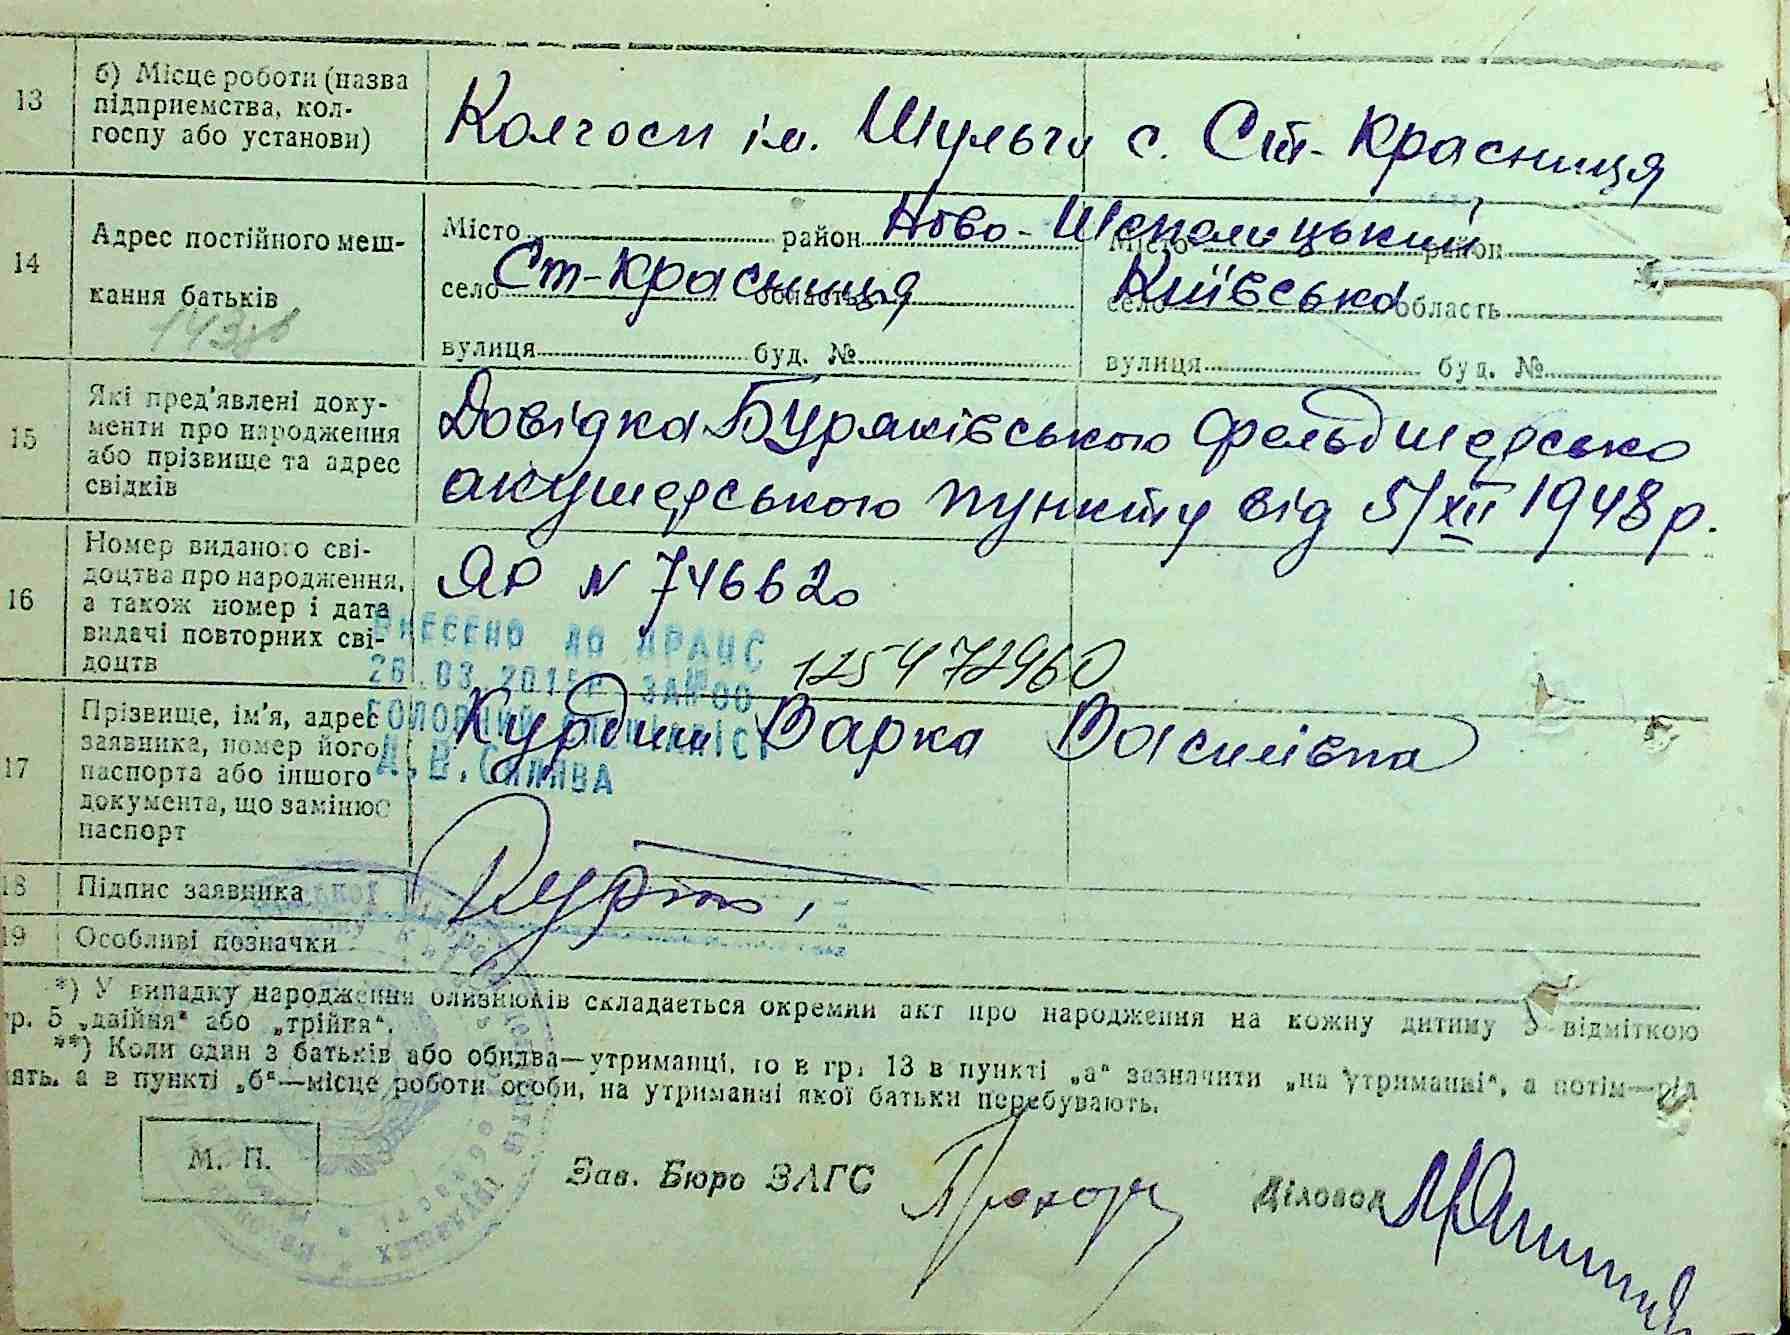 13 б) Місце роботи (назва підприємства, колгоспу або установи)
Колгосп ім. Шульги с. Ст-Красниця
14 Адрес постійного мешкання батьків
Місто район Ново-Шепелицький Місто район
село Ст-Красниця область село Київська область
вулиця буд. № вулиця буд. №
15 Які пред'явлені документи про народження або прізвище та адрес свідків
Довідка Буряківського фельдшерсько
акушерського пункту від 5/XII 1948 р.
16 Номер виданого свідоцтва про народження, а також номер і дата видачі повторних свідоцтв
ЯР N 746620
ВНЕСЕНО ДО ДРАЦС
26.03.201 ЗА №00
125472960
ГОЛОВНИЙ СПЕЦІАЛІСТ
17 Прізвище, ім'я, адрес заявника, номер його паспорта або іншого документа, що замінює паспорт
Курдиш Варка Василівна
18 Підпис заявника
19 Особливі позначки
*) У випадку народження близнюків складається окремий акт про народження на кожну дитину з відміткою
гр. 5 „двійня“ або „трійня“.
**) Коли один з батьків або обидва—утриманці, то в гр. 13 в пункті „а“ зазначити „на утриманні“, а потім—рід
занять, а в пункті „б“—місце роботи особи, на утриманні якої батьки перебувають.
М. П.
Зав. Бюро ЗАГС
Діловод